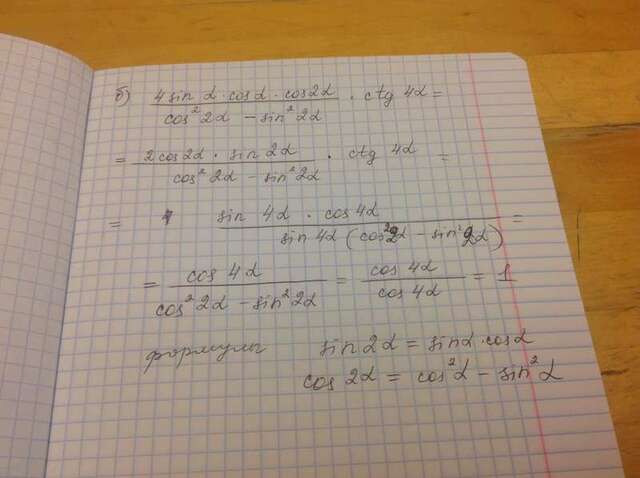 б) (4 sin α · cos α · cos 2α)/(cos² 2α − sin² 2α) · ctg 4α =
= (2 cos 2α · sin 2α)/(cos² 2α − sin² 2α) · ctg 4α =
= (sin 4α · cos 4α)/(sin 4α (cos² 2α − sin² 2α)) =
= (cos 4α)/(cos² 2α − sin² 2α) = (cos 4α)/(cos 4α) = 1
формулы sin 2α = sin α · cos α
cos 2α = cos² α − sin² α